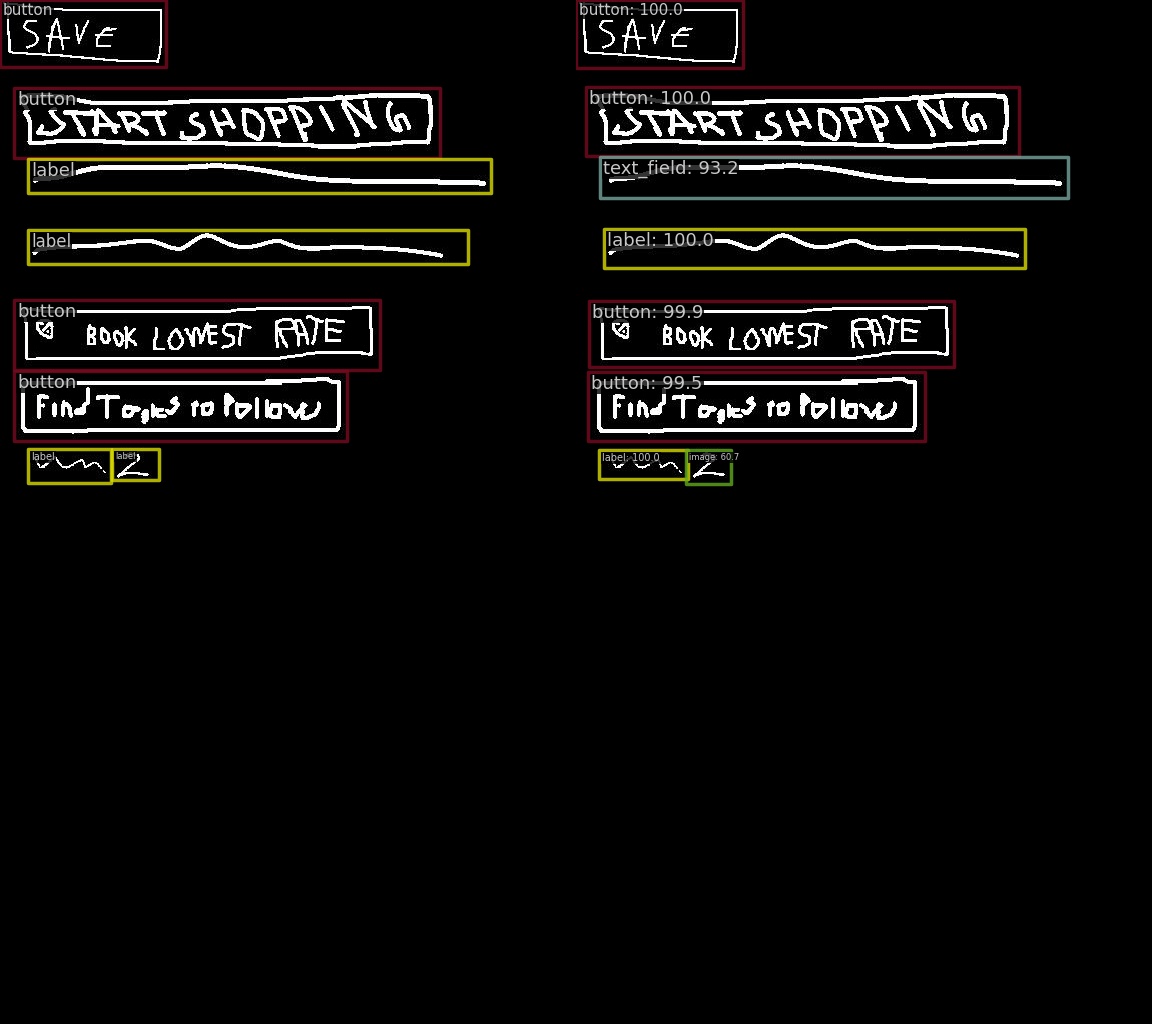 button
SAVE
button
START SHOPPING
label
label
button
BOOK LOWEST RATE
button
Find to Follow
label
label
button: 100.0
SAVE
button: 100.0
START SHOPPING
text_field: 93.2
label: 100.0
button: 99.9
BOOK LOWEST RATE
button: 99.5
Find to Follow
label: 100.0
image: 60.7